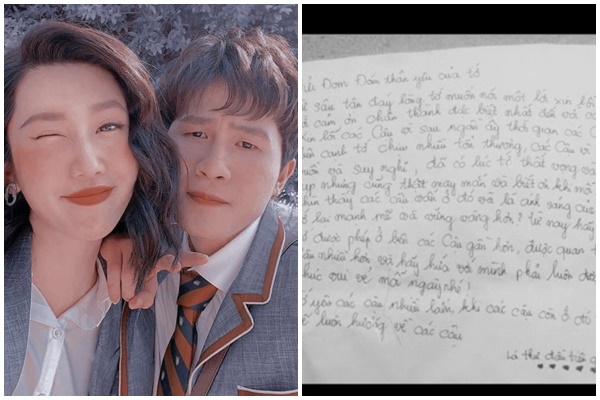 Đom Đóm thân yêu của tớ
sâu tận đáy lòng tớ muốn nói một lời xin lỗi
cảm ơn chân thành đặc biệt nhất đến và
xin lỗi các Cậu vì sau ngần ấy thời gian các
cạnh tớ chịu nhiều tổn thương, các Cậu vì
và suy nghĩ, đã có lúc tớ thất vọng và
nhưng cũng thật may mắn và biết ơn khi mỗi
thấy các cậu vẫn ở đó và là ánh sáng của
lại mạnh mẽ và vững vàng hơn! Từ nay hãy
được phép ở bên các Cậu gần hơn, được quan
nhiều hơn và hãy hứa với mình phải luôn
vui vẻ mỗi ngày nhé!
yêu các cậu nhiều lắm, khi các cậu còn ở đó
luôn hướng về các cậu
Lá thư đầu tiên